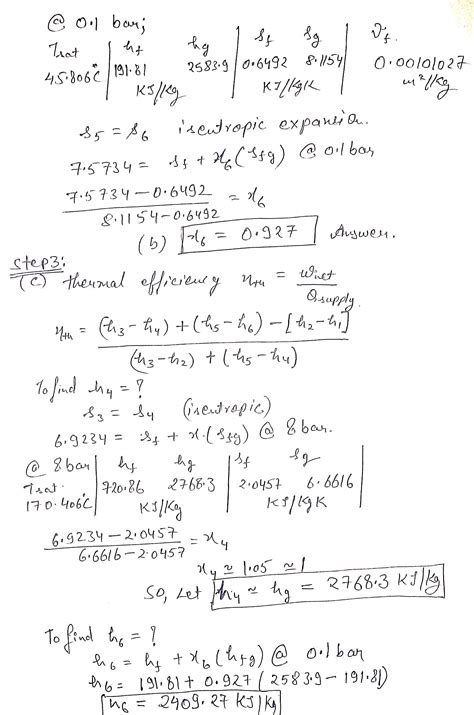 @ 0.1 bar;
Tsat | hf hg | sf sg | vf
45.806°C | 191.81 2583.9 | 0.6492 8.1154 | 0.00101027
KJ/Kg KJ/KgK m²/kg
s5 = s6 isentropic expansion.
7.5734 = sf + x6 (sfg) @ 0.1 bar
7.5734 - 0.6492 / 8.1154 - 0.6492 = x6
(b) x6 = 0.927 Answer.
Step3:
(c) thermal efficiency ηth = Wnet / Qsupply.
ηth = (h3 - h4) + (h5 - h6) - [h2 - h1] / (h3 - h2) + (h5 - h4)
To find h4 = ?
s3 = s4 (isentropic)
6.9234 = sf + x.(sfg) @ 8 bar.
@ 8 bar | hf hg | sf sg
Tsat. | 720.86 2768.3 | 2.0457 6.6616
170.406°C | KJ/Kg KJ/KgK
6.9234 - 2.0457 / 6.6616 - 2.0457 = x4
x4 ≃ 1.05 ≃ 1
So, Let h4 ≃ hg = 2768.3 KJ/kg
To find h6 = ?
h6 = hf + x6 (hfg) @ 0.1 bar
h6 = 191.81 + 0.927 (2583.9 - 191.81)
h6 = 2409.27 KJ/kg